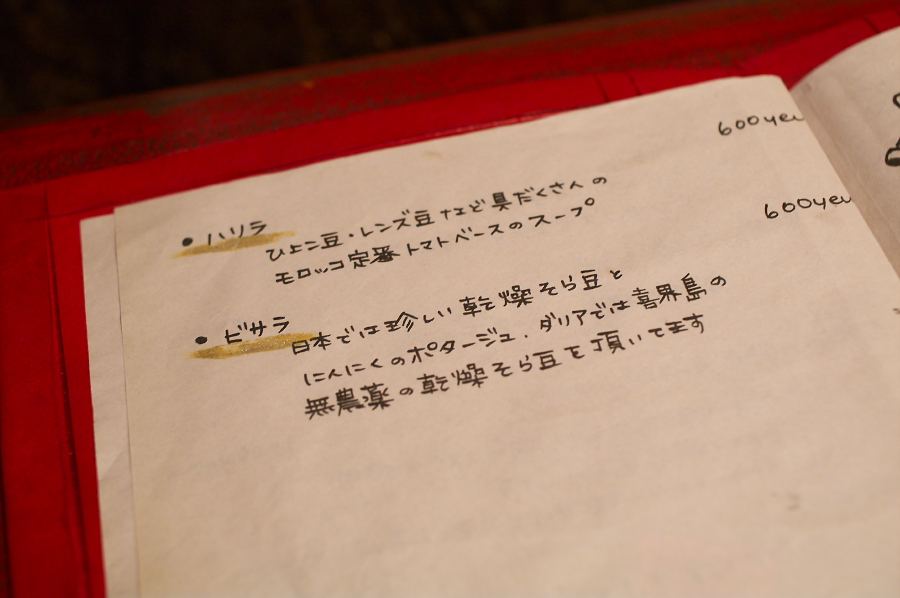 600yen
・ハリラ
ひよこ豆・レンズ豆など具だくさんの
モロッコ定番トマトベースのスープ
600yen
・ビサラ
日本では珍しい乾燥そら豆と
にんにくのポタージュ．ダリアでは喜界島の
無農薬の乾燥そら豆を頂いてます